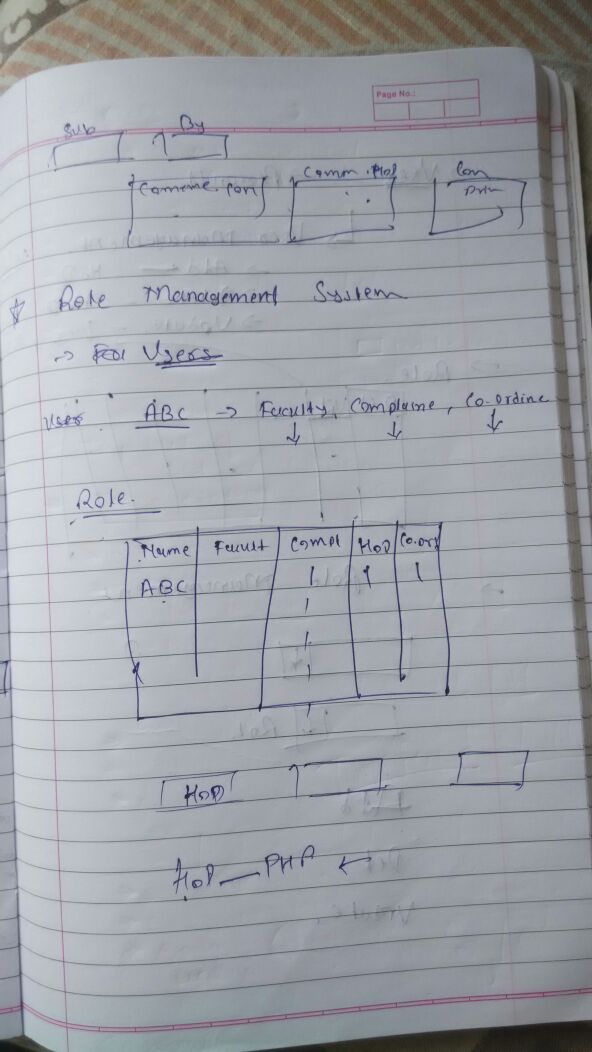 Page No.:
Sub By
Comm. HOD Com
Role Management System
→ For Users
User ABC → Faculty, Complaine, Co-ordine
Role.
Name Facult Compl HOD Co.ord
ABC | | |
|
|
|
|
HOD
HOD — PHP ←